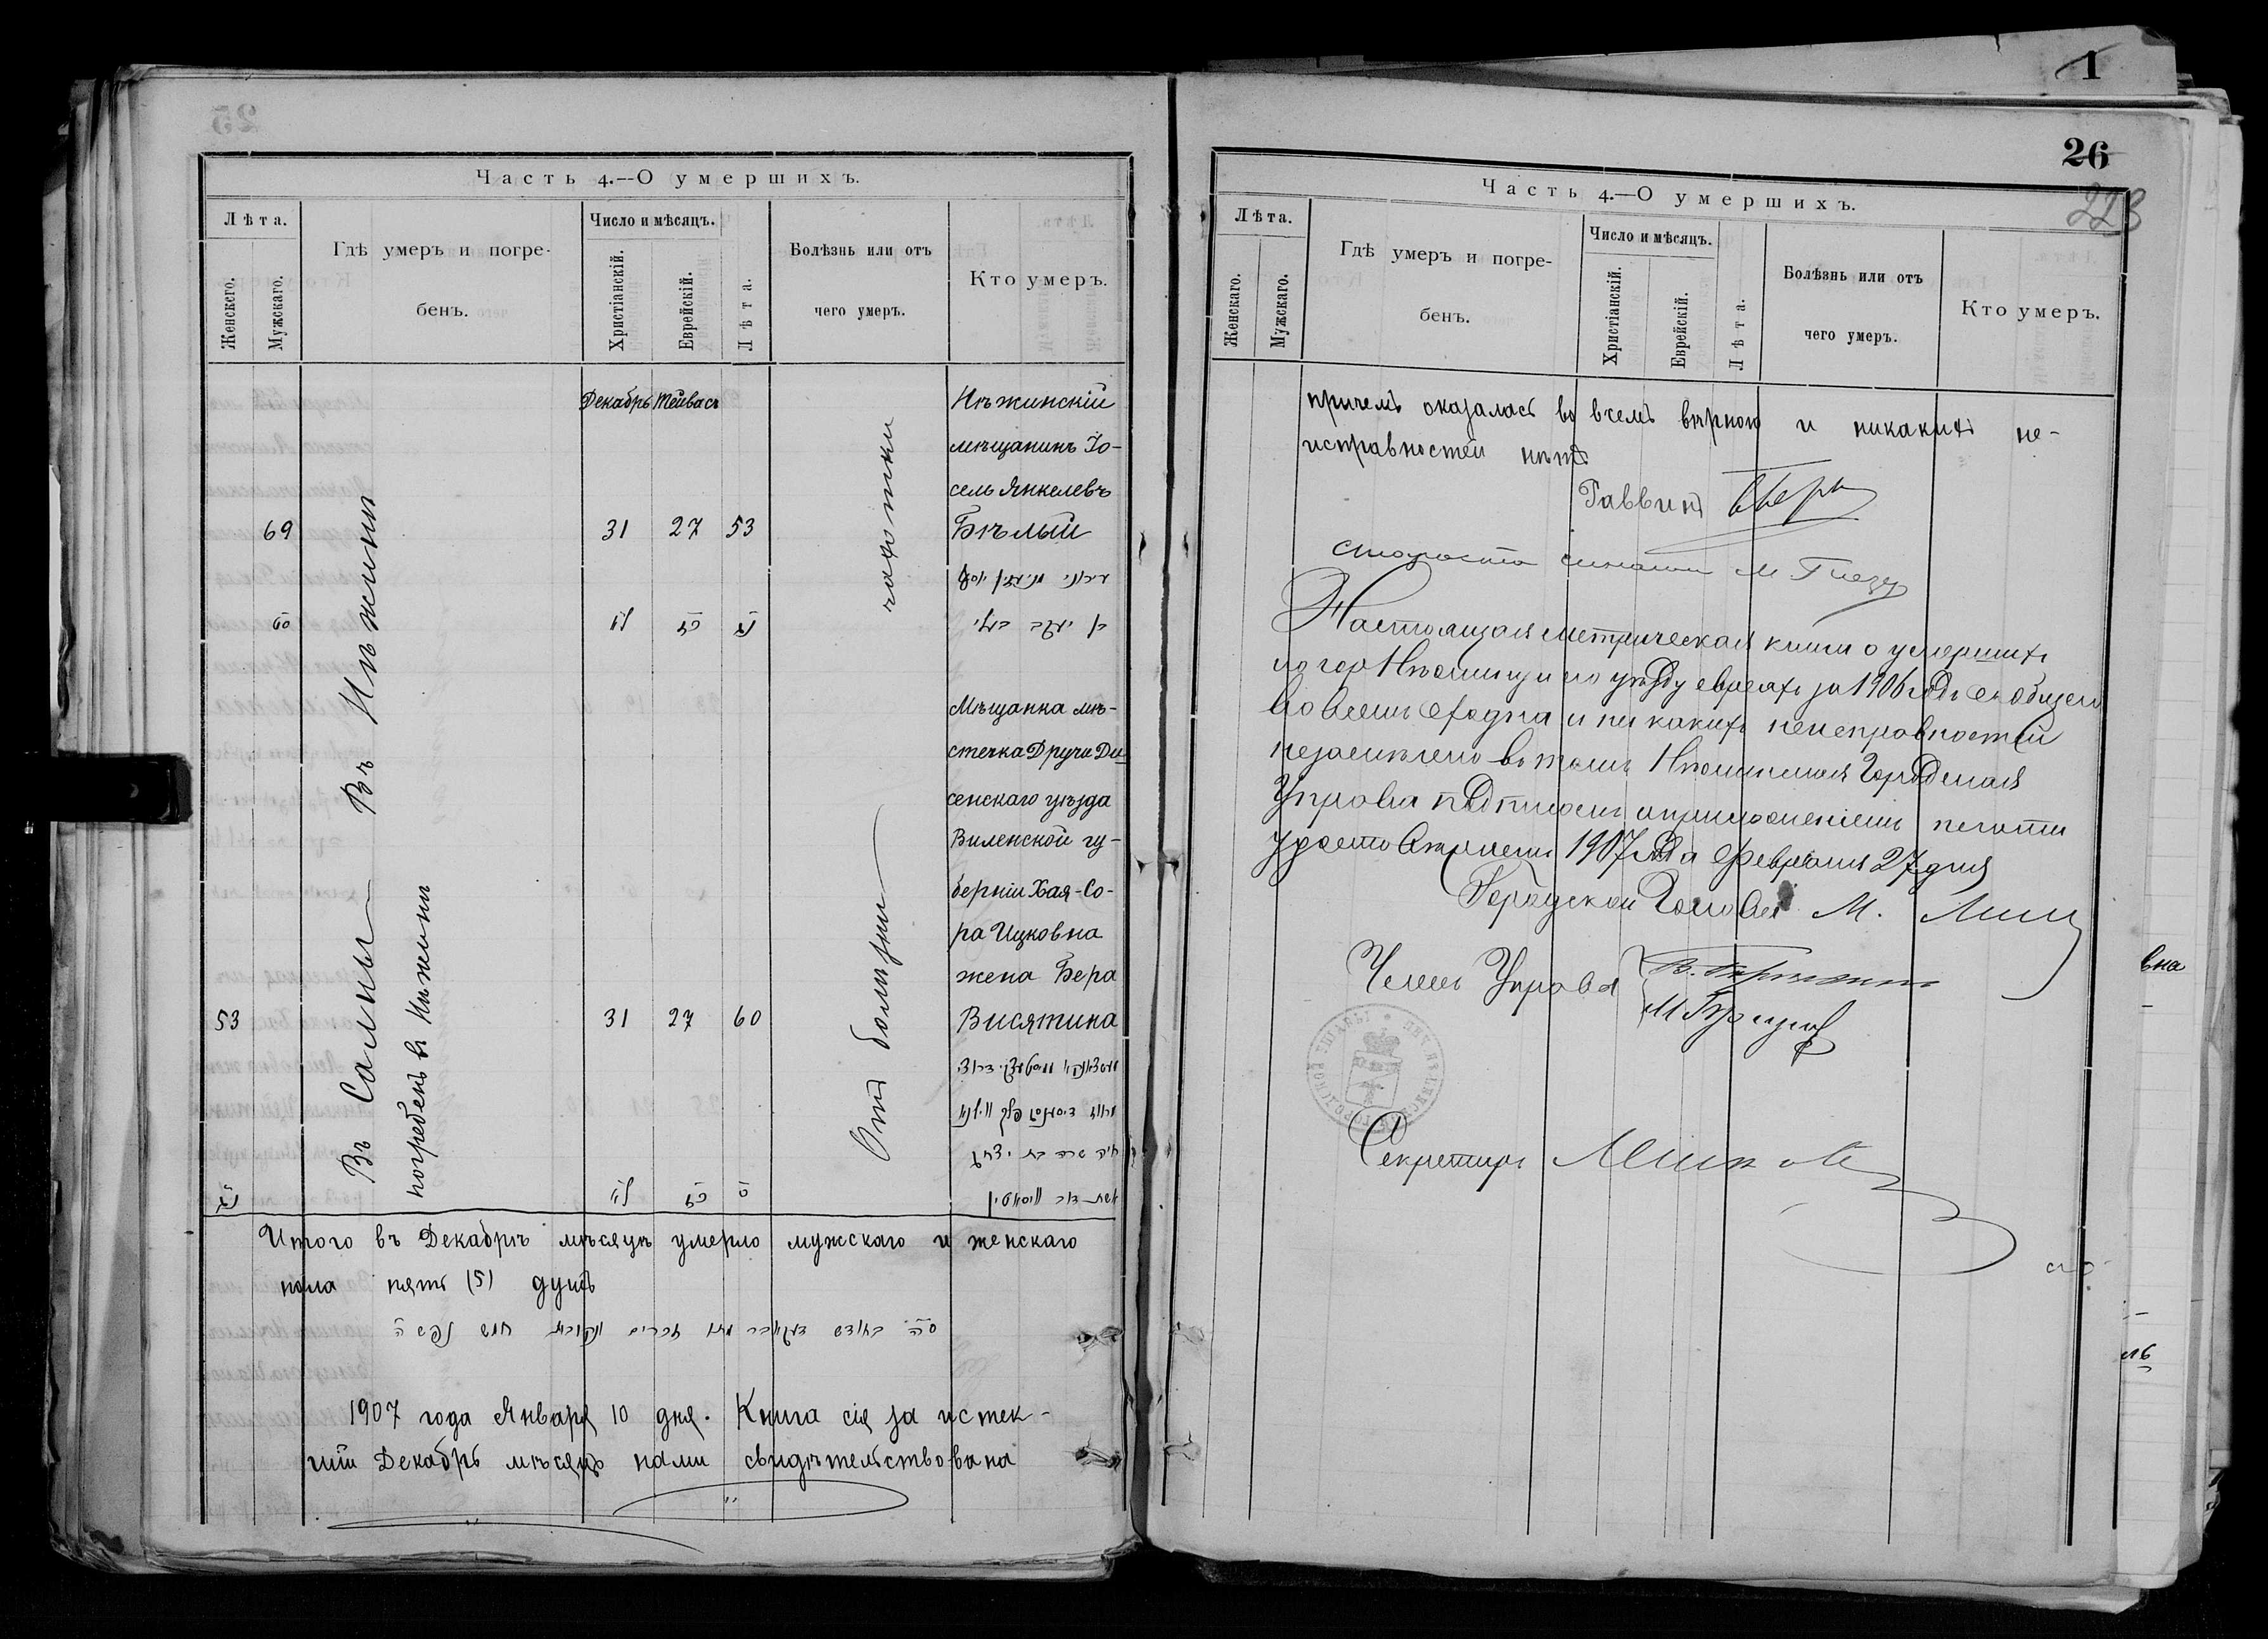 25
Часть 4.—О умершихъ.
Лѣта.
Женскего.
Мужскаго.
Гдѣ умеръ и погре-
бенъ.
Число и мѣсяцъ.
Христіанскій.
Еврейскій.
Лѣта.
Болѣзнь или отъ
чего умеръ.
Кто умеръ.
Декабрь Тейвасъ
69
Въ Нѣжинѣ
31 27 53
чахотки
Нѣжинскій
мѣщанинъ Іо-
сель Янкелевъ
Бѣлый
53
Въ
погребенъ въ Нѣжинѣ
31 27 60
Отъ болѣзни
Мѣщанка мѣ-
стечка Друи Ди-
сенскаго уѣзда
Виленской гу-
берніи Хая-Со-
ра Ицковна
жена Бера
Висятина
חיה שרה בת יצחק
Итого въ Декабрѣ мѣсяцѣ умерло мужскаго и женскаго
пола пять (5) душъ
1907 года Января 10 дня. Книга сія за истек-
шій Декабрь мѣсяцъ нами свидѣтельствована
1
26
223
Часть 4.—О умершихъ.
Лѣта.
Женскаго.
Мужскаго.
Гдѣ умеръ и погре-
бенъ.
Число и мѣсяцъ.
Христіанскій.
Еврейскій.
Лѣта.
Болѣзнь или отъ
чего умеръ.
Кто умеръ.
причемъ оказалась во всемъ вѣрною и никакихъ не-
исправностей нѣтъ
Раввинъ
староста М.
Настоящая метрическая книга о умершихъ
по гор Нѣжину и по уѣзду евреяхъ за 1906 годъ
во всемъ сходна и ни какихъ неисправностей
незамѣчено въ томъ Нѣжинская Городская
Управа подписомъ и приложеніемъ печати
удостовѣряетъ 1907 года Февраля 27 дня
Городской Голова М.
Члены Управы
М
Секретарь
вна